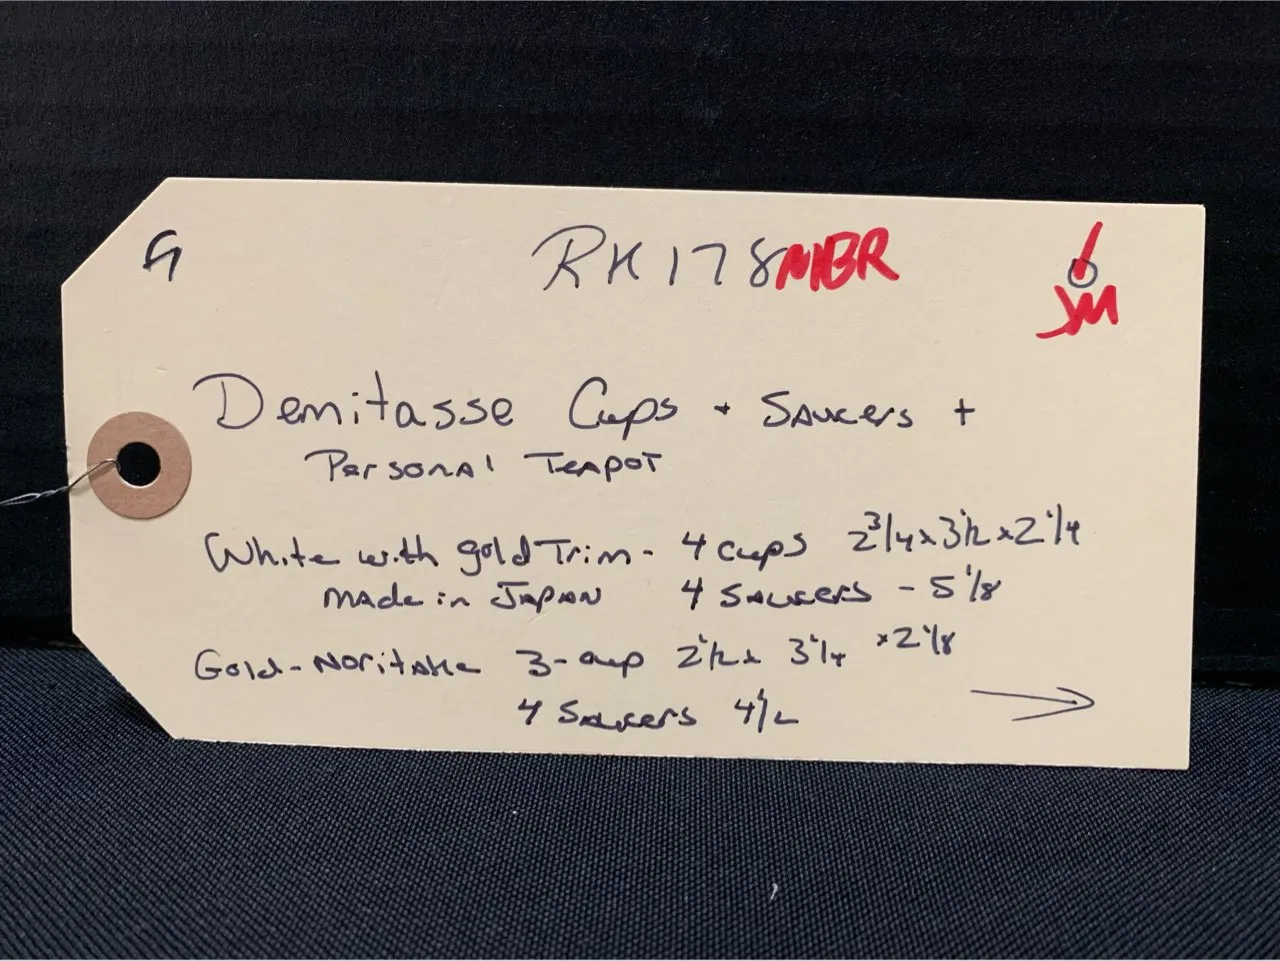 G RK178MBR
JM
Demitasse Cups + Saucers +
Personal Teapot
White with gold Trim - 4 cups 2 3/4 x 3 1/2 x 2 1/4
made in JAPAN 4 Saucers - 5 1/8
Gold-Noritake 3-cup 2 1/2 x 3 1/4 x 2 1/8
4 Saucers 4 1/2